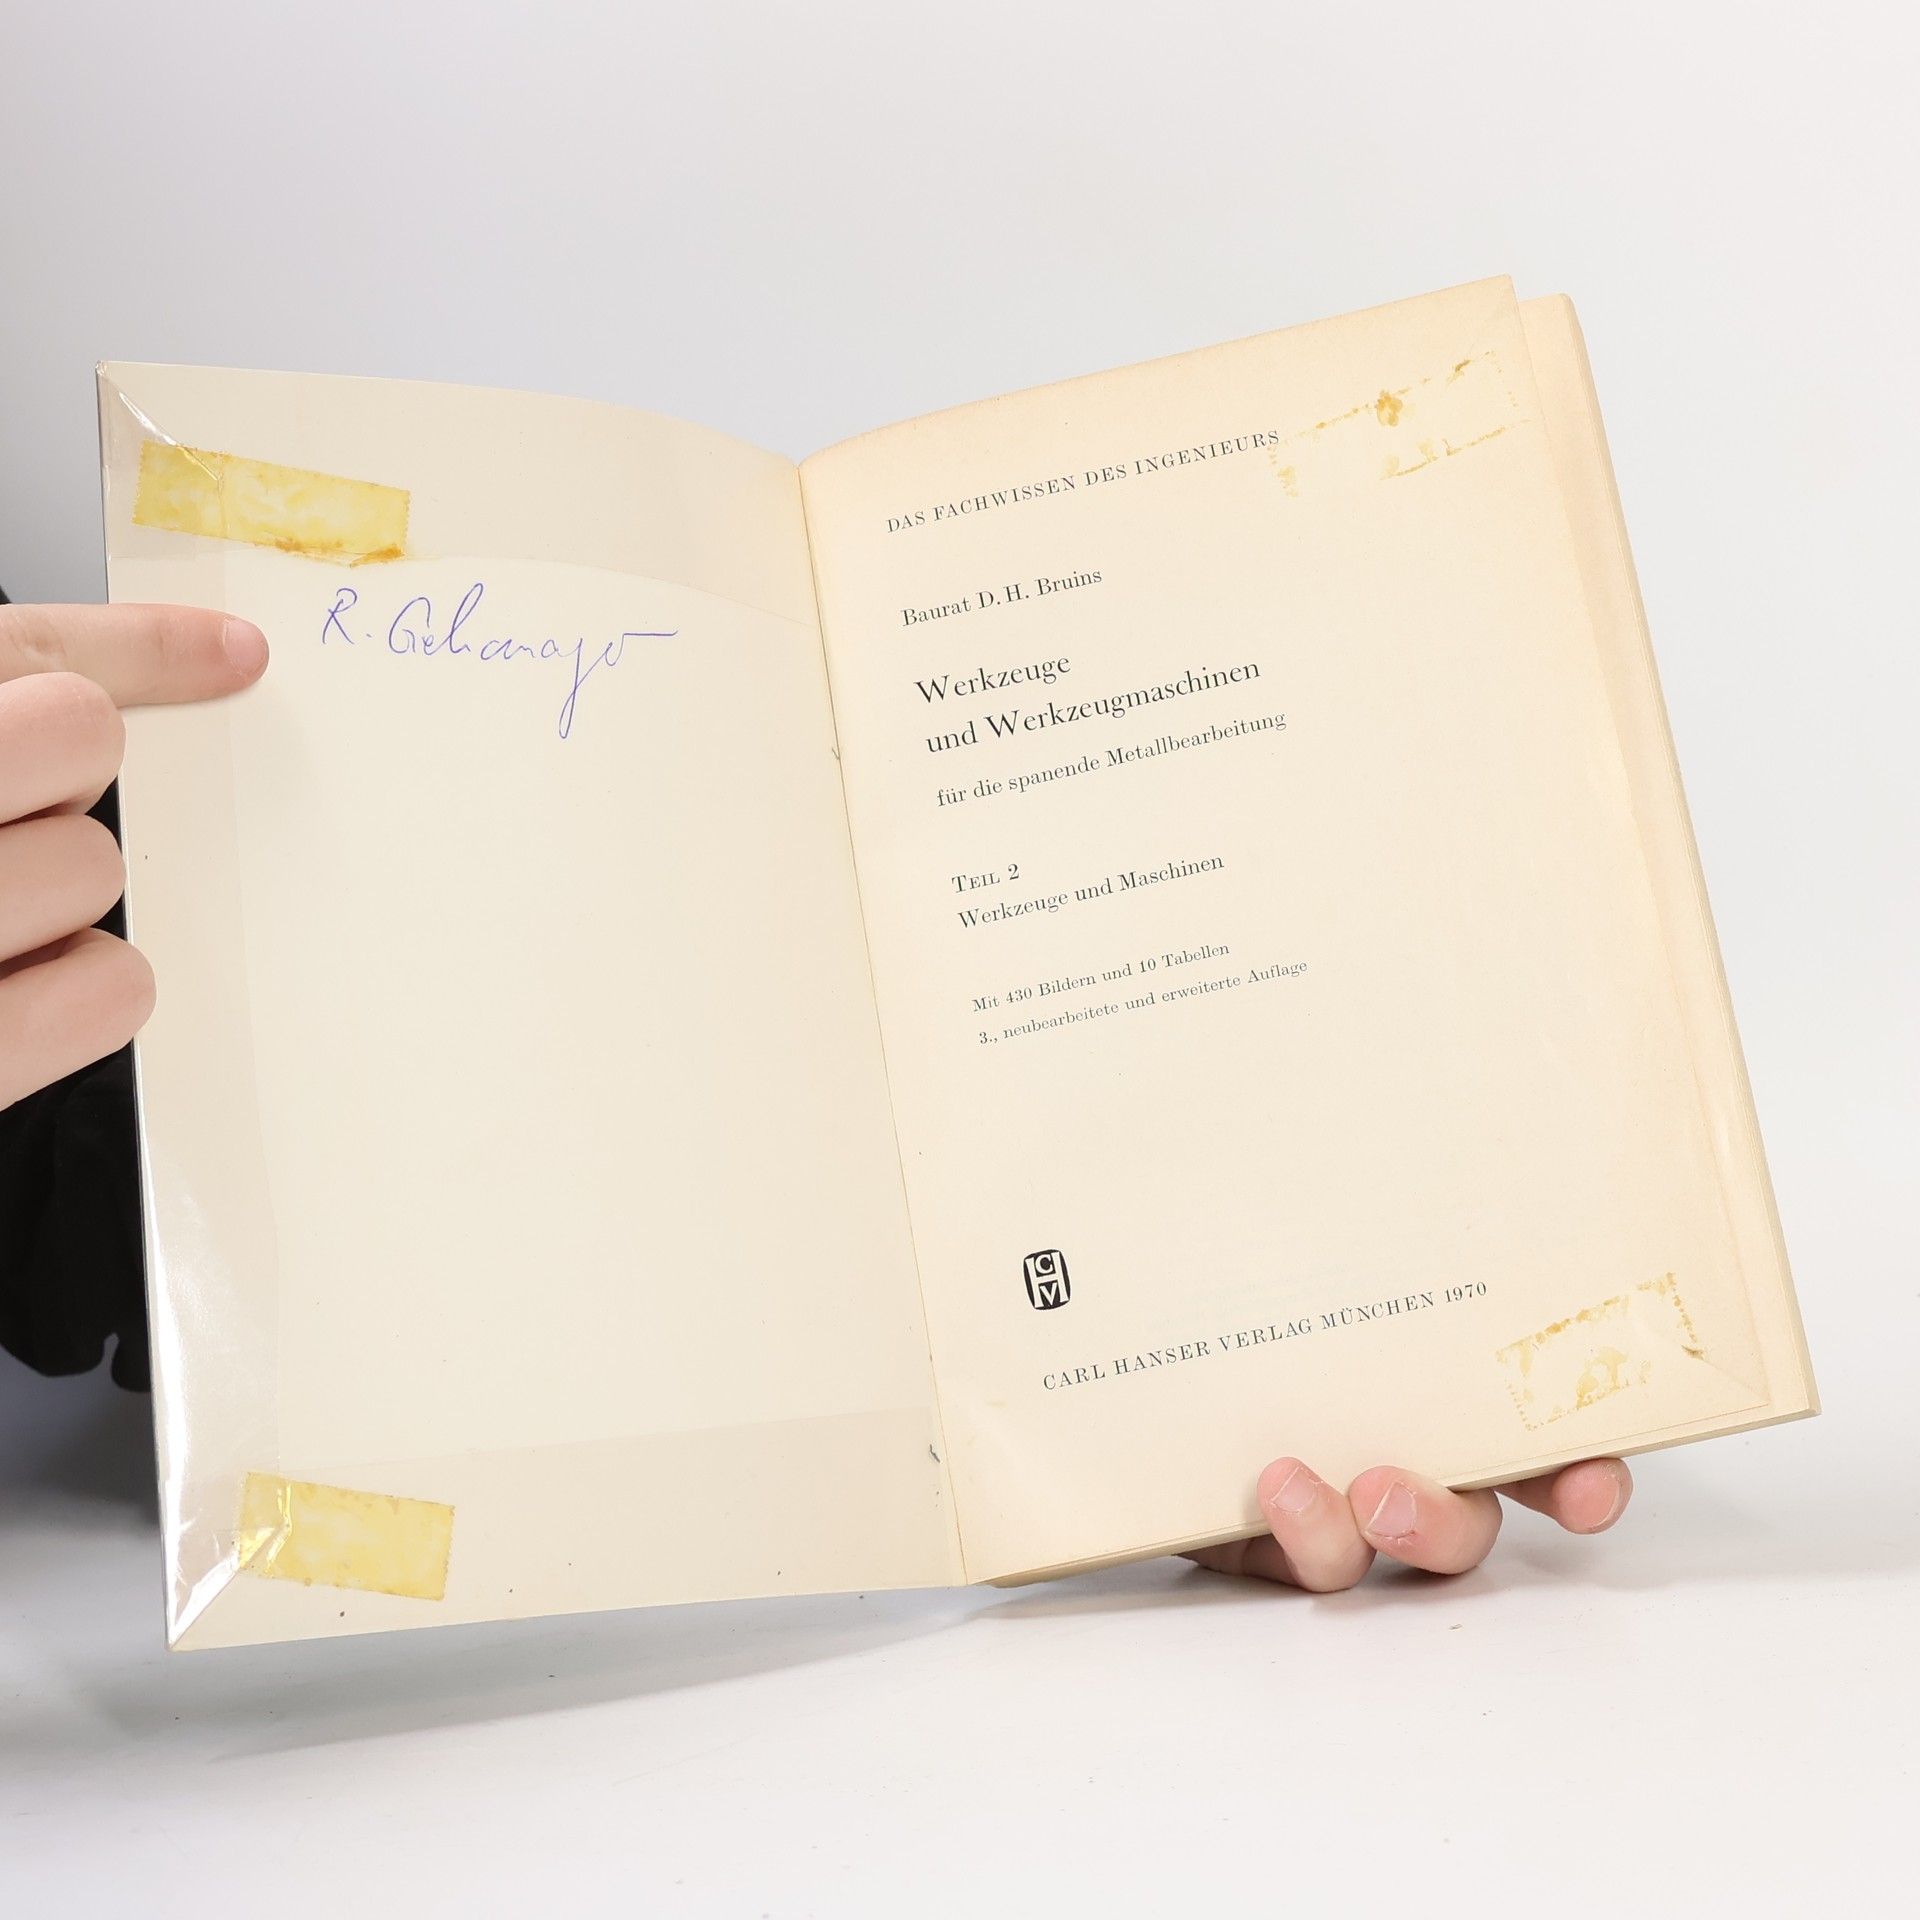 R.
DAS FACHWISSEN DES INGENIEURS
Baurat D. H. Bruins
Werkzeuge
und Werkzeugmaschinen
für die spanende Metallbearbeitung
TEIL 2
Werkzeuge und Maschinen
Mit 430 Bildern und 10 Tabellen
3., neubearbeitete und erweiterte Auflage
CHV
CARL HANSER VERLAG MÜNCHEN 1970